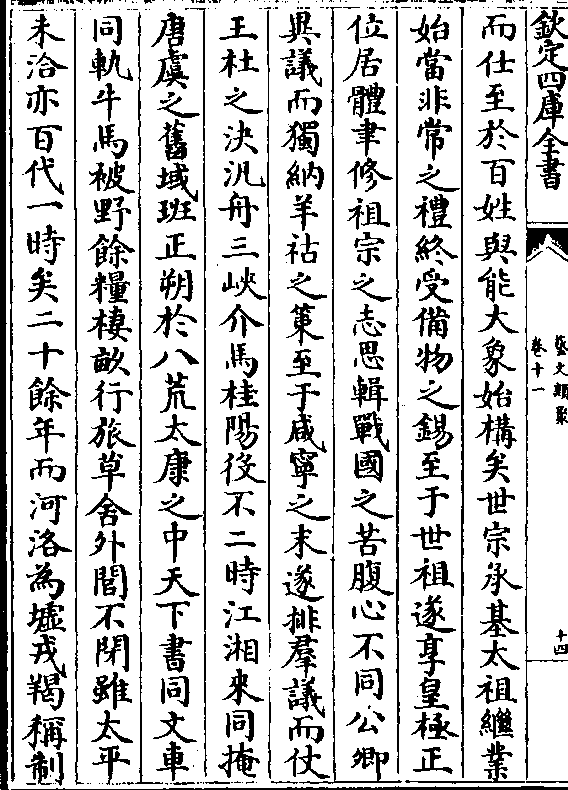 欽定四庫全書
藝文類聚
卷十一
十四
而仕至於百姓與能大象始構矣世宗承基太祖繼業
始當非常之禮終受備物之錫至于世祖遂享皇極正
位居體聿修祖宗之志思輯戰國之苦腹心不同公卿
異議而獨納羊祜之策至于咸寧之末遂排羣議而仗
王杜之決汎舟三峽介馬桂陽役不二時江湘來同掩
唐虞之舊域班正朔於八荒太康之中天下書同文車
同軌牛馬被野餘糧棲畝行旅草舍外閭不閉雖太平
未洽亦百代一時矣二十餘年而河洛為墟戎羯稱制